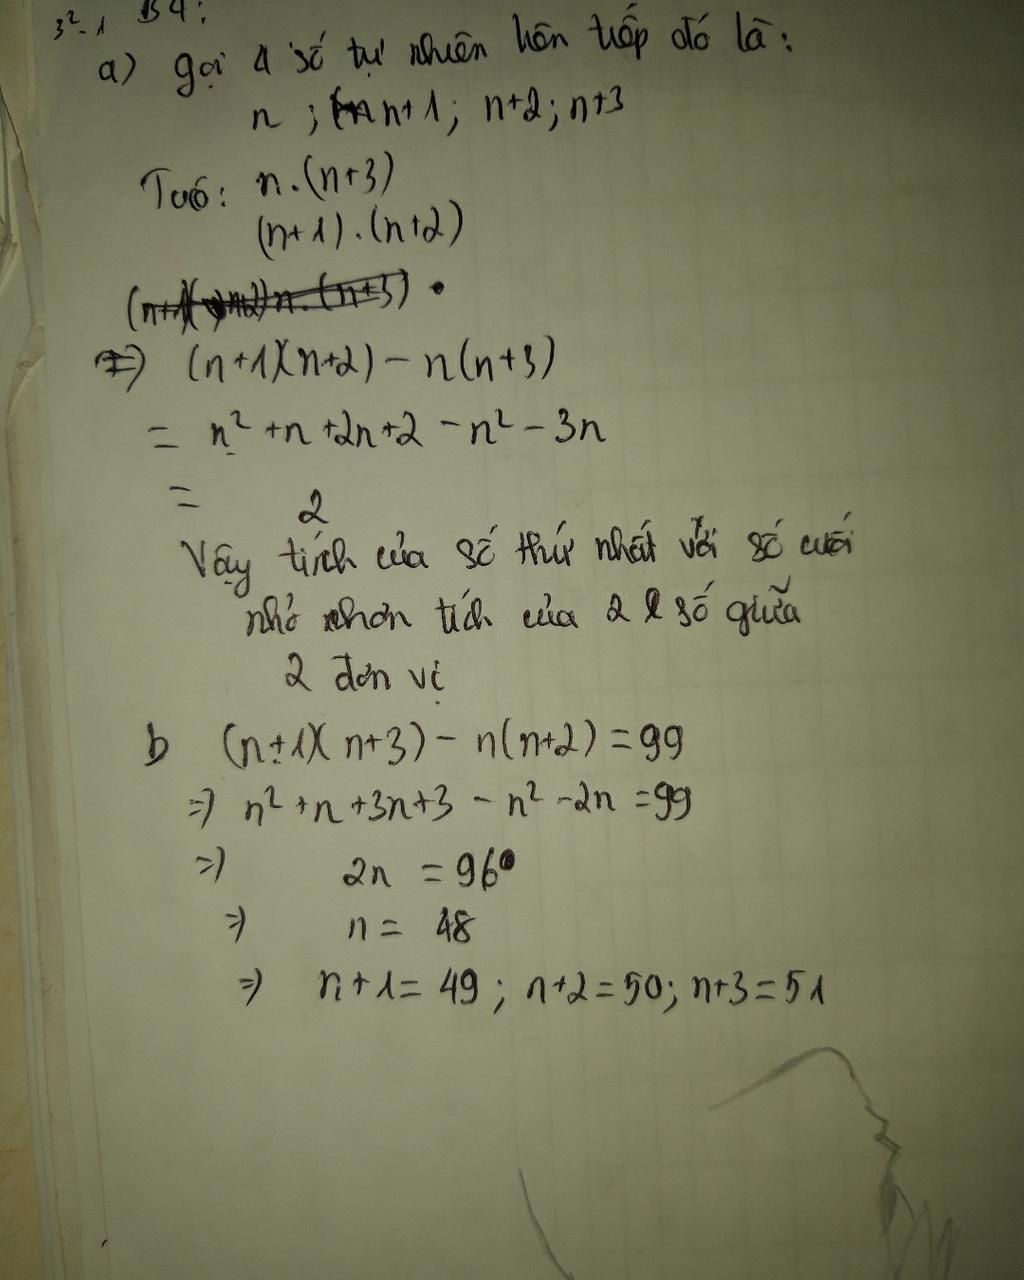 3²-1 B4:
a) gọi 4 số tự nhiên liên tiếp đó là:
n ; n+1; n+2; n+3
n.(n+3)
(n+1).(n+2)
=> (n+1)(n+2) - n(n+3)
= n² + n + 2n + 2 - n² - 3n
= 2
Vậy tích của số thứ nhất với số cuối
nhỏ nhơn tích của 2 số giữa
2 đơn vị
b (n+1)(n+3) - n(n+2) = 99
=> n² + n + 3n + 3 - n² - 2n = 99
=> 2n = 96
=> n = 48
=> n+1 = 49 ; n+2 = 50; n+3 = 51